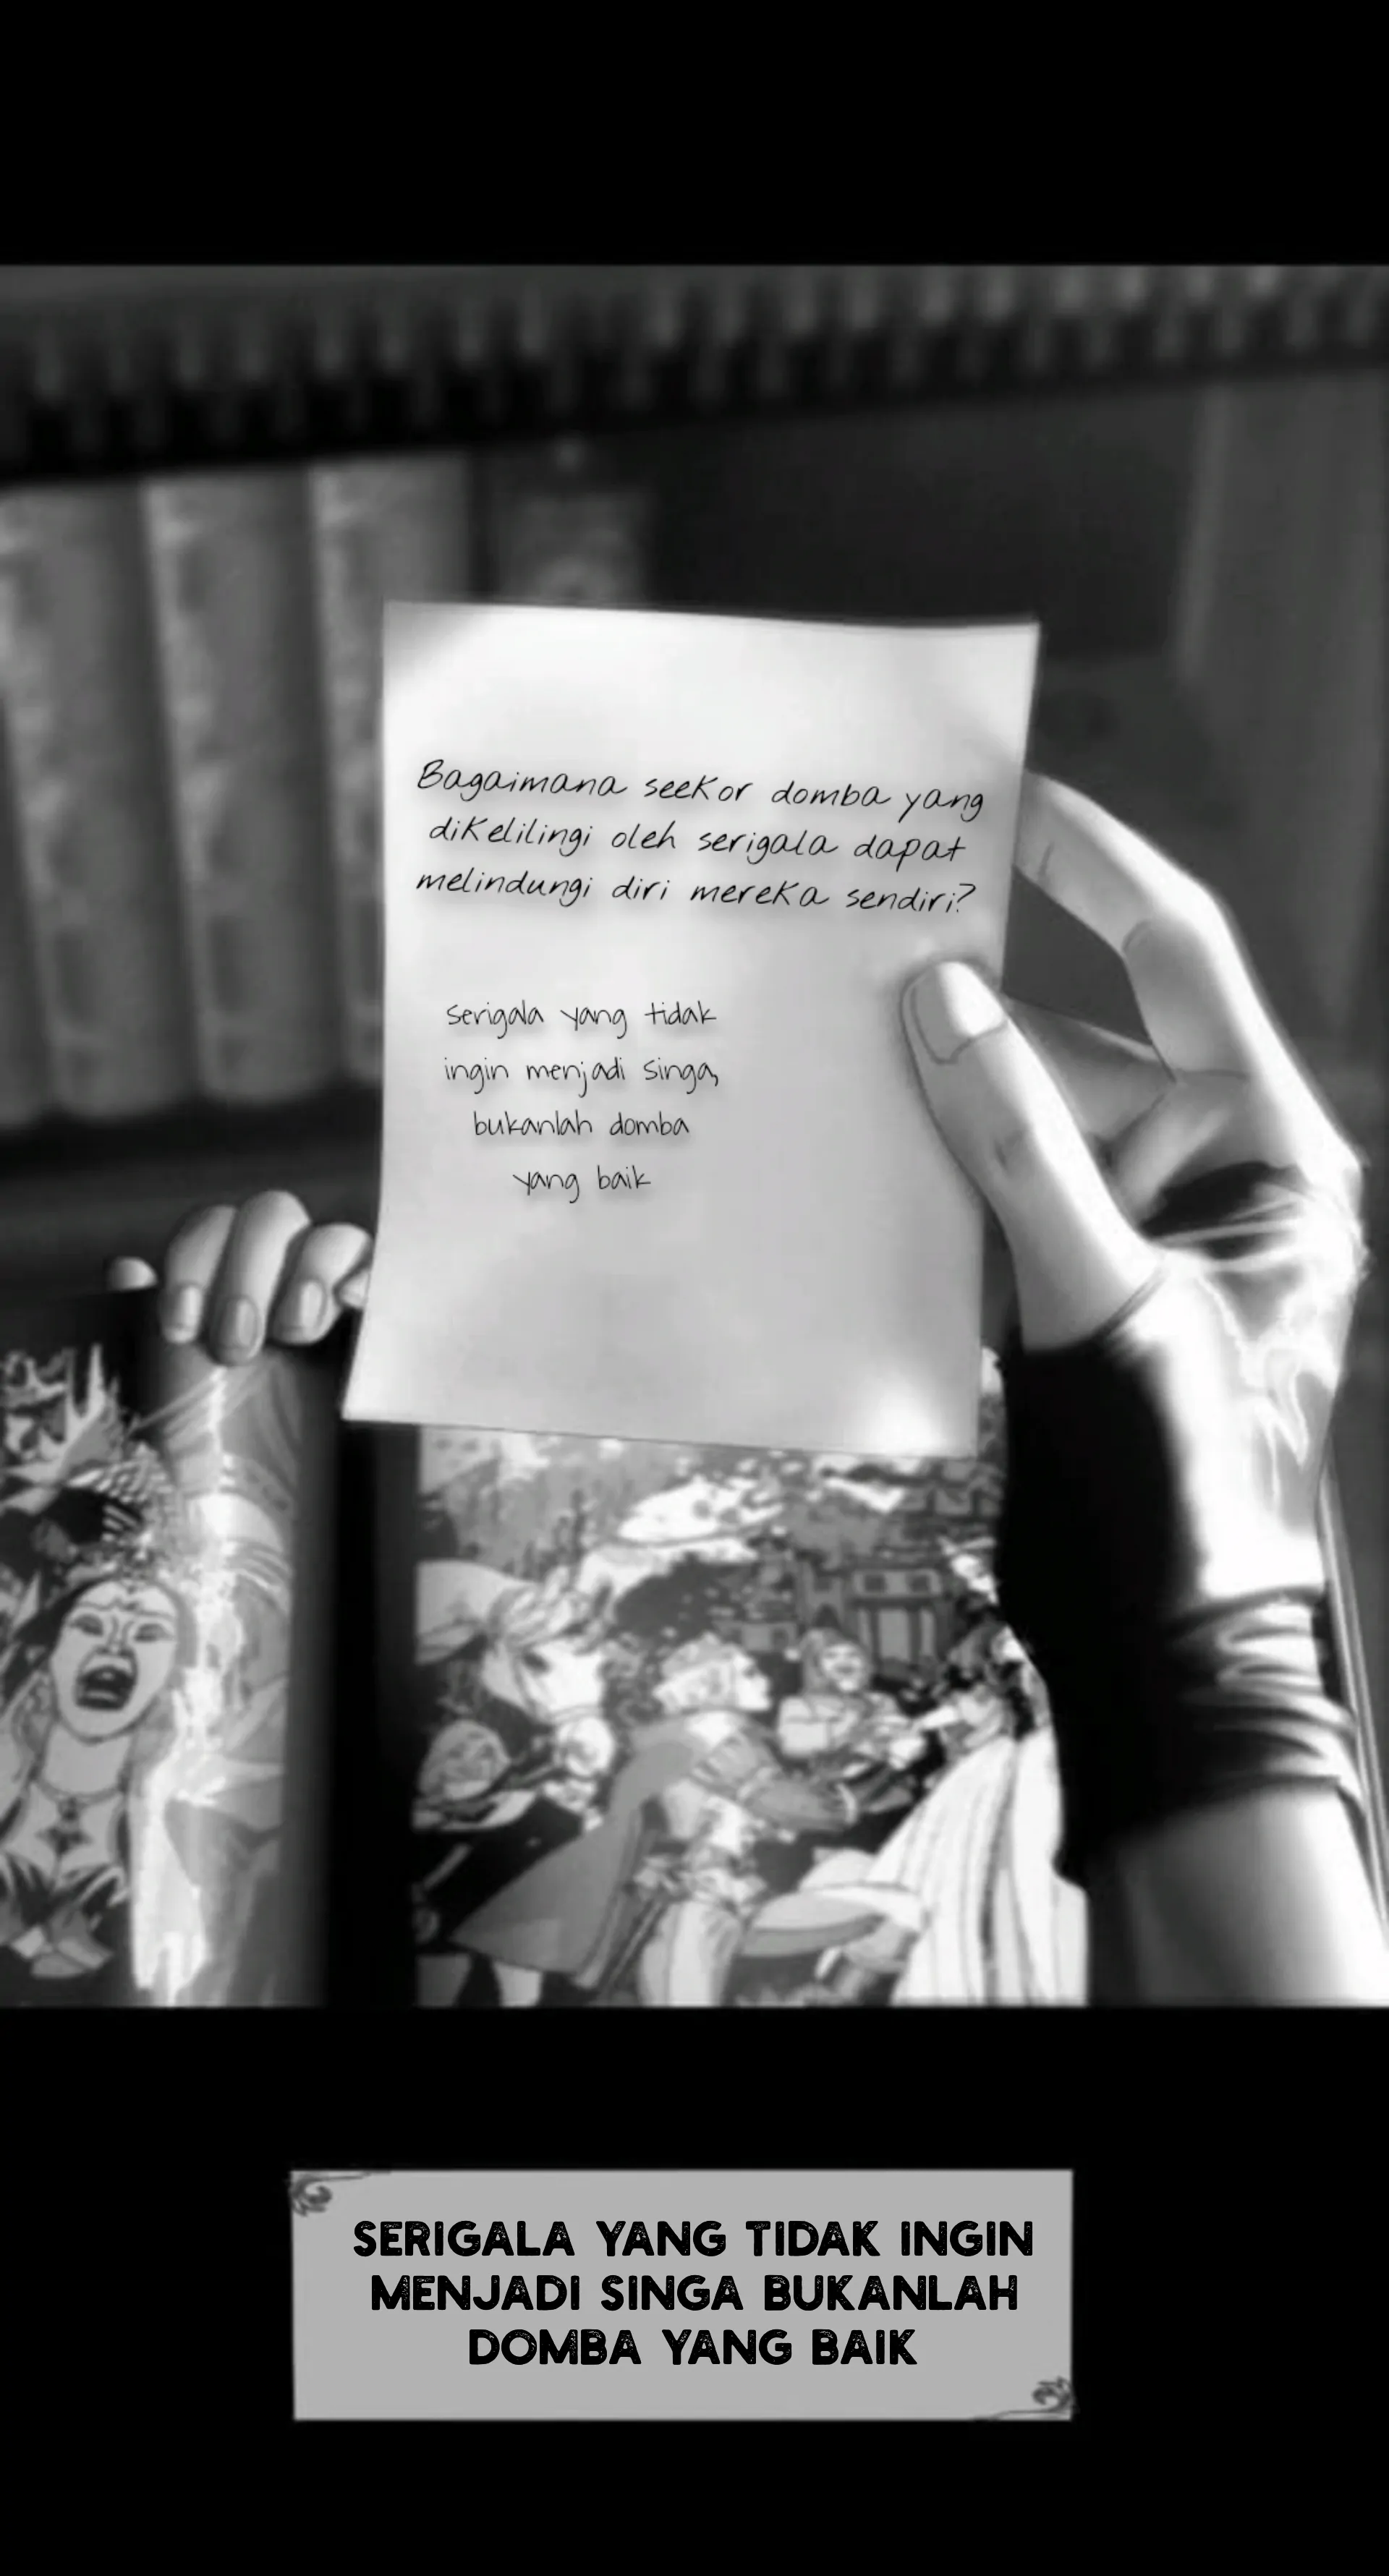 Bagaimana seekor domba yang
dikelilingi oleh serigala dapat
melindungi diri mereka sendiri?
serigala yang tidak
ingin menjadi singa,
bukanlah domba
yang baik
SERIGALA YANG TIDAK INGIN
MENJADI SINGA BUKANLAH
DOMBA YANG BAIK